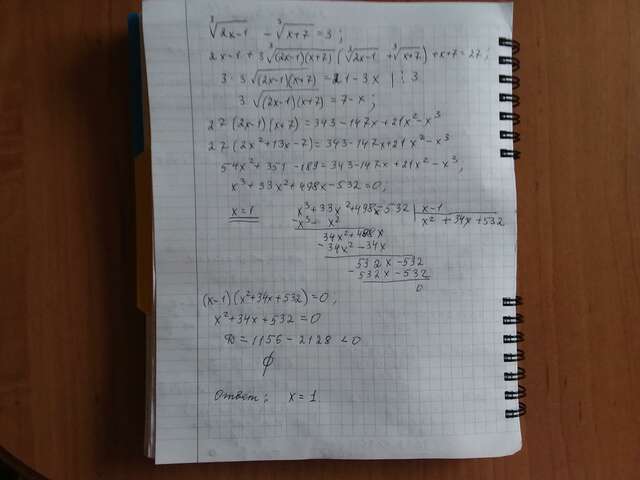 ∛(2x-1) - ∛(x+7) = 3;
2x-1+3∛((2x-1)(x+7)) (∛(2x-1) + ∛(x+7)) + x+7 = 27;
3·3∛((2x-1)(x+7)) = 21-3x | : 3
3∛((2x-1)(x+7)) = 7-x;
27(2x-1)(x+7) = 343-147x+21x²-x³
27(2x²+13x-7) = 343-147x+21x²-x³
54x²+351-189 = 343-147x+21x²-x³,
x³+33x²+498x-532=0;
x=1
x³+33x²+498x-532 | x-1
-x³- x² | x²+34x+532
34x²+498x
-34x²-34x
532x-532
-532x-532
0
(x-1)(x²+34x+532)=0;
x²+34x+532=0
D=1156-2128<0
∅
Ответ: x=1